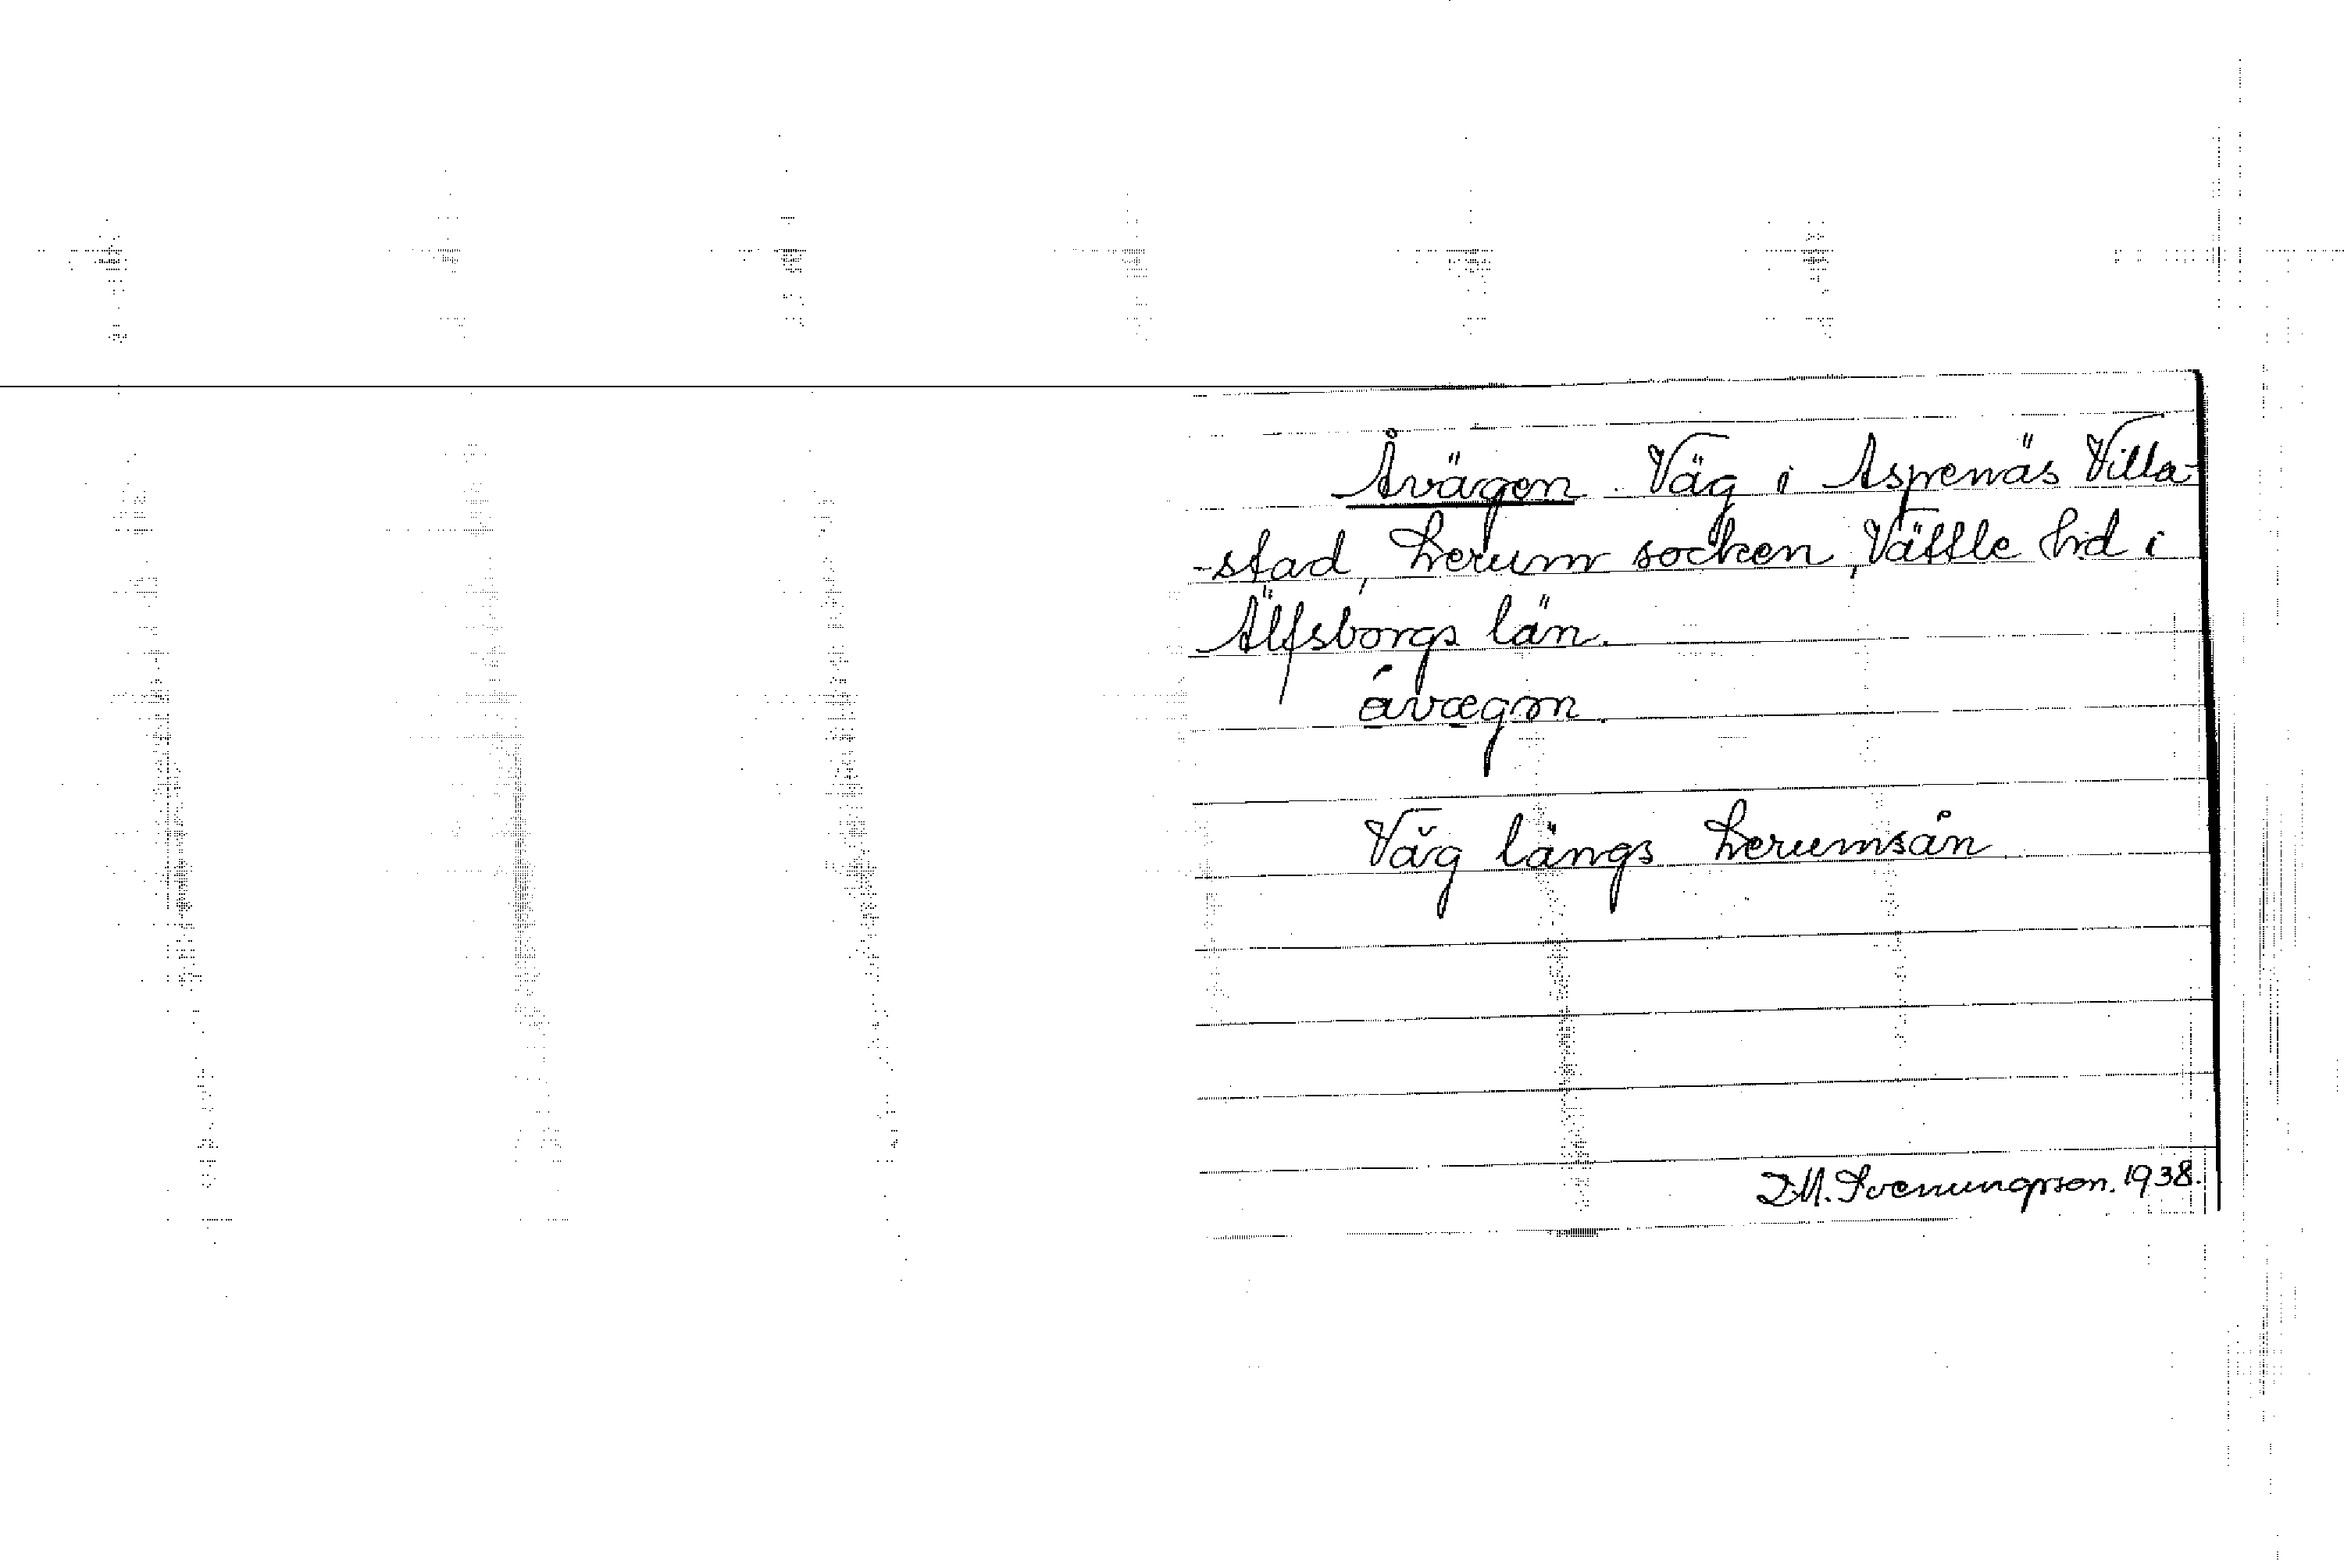 Åvägen. Väg i Aspenäs Villa-
-stad, Lerum socken, Vättle hd i
Älfsborgs län.
åvægən.
Väg längs Lerumsån
I.M. Svenungsson. 1938.